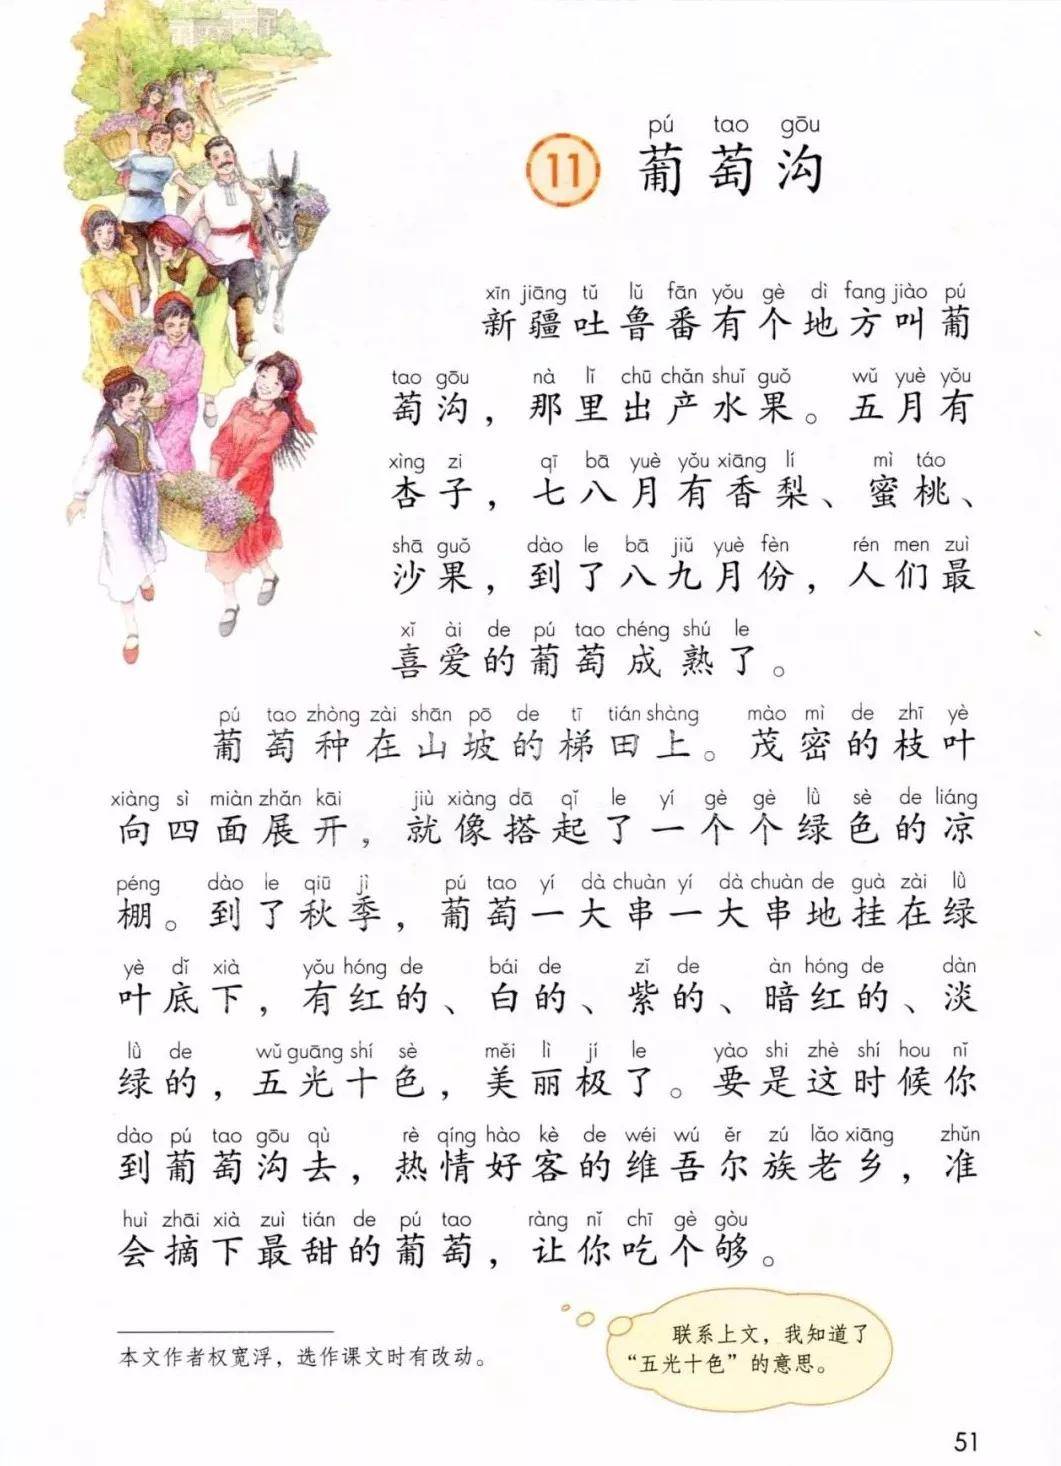 pú tao gōu
11 葡萄沟
xīn jiāng tǔ lǔ fān yǒu gè dì fang jiào pú
新疆吐鲁番有个地方叫葡
tao gōu nà lǐ chū chǎn shuǐ guǒ wǔ yuè yǒu
萄沟，那里出产水果。五月有
xìng zi qī bā yuè yǒu xiāng lí mì táo
杏子，七八月有香梨、蜜桃、
shā guǒ dào le bā jiǔ yuè fèn rén men zuì
沙果，到了八九月份，人们最
xǐ ài de pú tao chéng shú le
喜爱的葡萄成熟了。
pú tao zhòng zài shān pō de tī tián shàng mào mì de zhī yè
葡萄种在山坡的梯田上。茂密的枝叶
xiàng sì miàn zhǎn kāi jiù xiàng dā qǐ le yí gè gè lǜ sè de liáng
向四面展开，就像搭起了一个个绿色的凉
péng dào le qiū jì pú tao yí dà chuàn yí dà chuàn de guà zài lǜ
棚。到了秋季，葡萄一大串一大串地挂在绿
yè dǐ xià yǒu hóng de bái de zǐ de àn hóng de dàn
叶底下，有红的、白的、紫的、暗红的、淡
lǜ de wǔ guāng shí sè měi lì jí le yào shi zhè shí hou nǐ
绿的，五光十色，美丽极了。要是这时候你
dào pú tao gōu qù rè qíng hào kè de wéi wú ěr zú lǎo xiāng zhǔn
到葡萄沟去，热情好客的维吾尔族老乡，准
huì zhāi xià zuì tián de pú tao ràng nǐ chī gè gòu
会摘下最甜的葡萄，让你吃个够。
本文作者权宽浮，选作课文时有改动。
联系上文，我知道了
“五光十色”的意思。
51